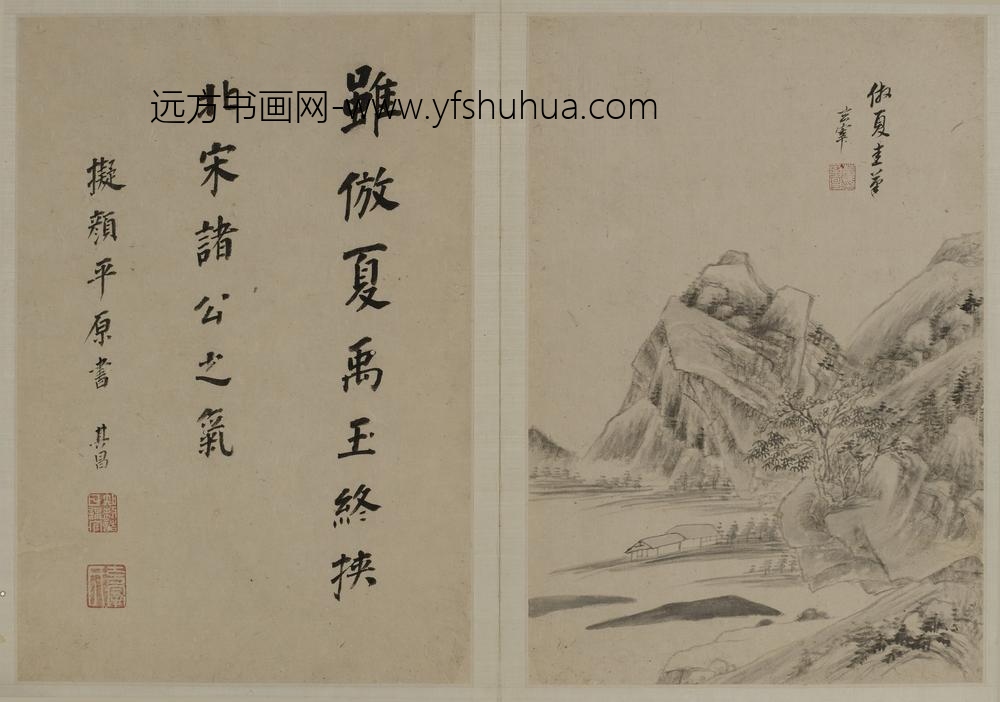 倣夏圭筆
玄宰
雖倣夏禹玉終挾
北宋諸公之氣
擬顏平原書 其昌
远方书画网-www.yfshuhua.com